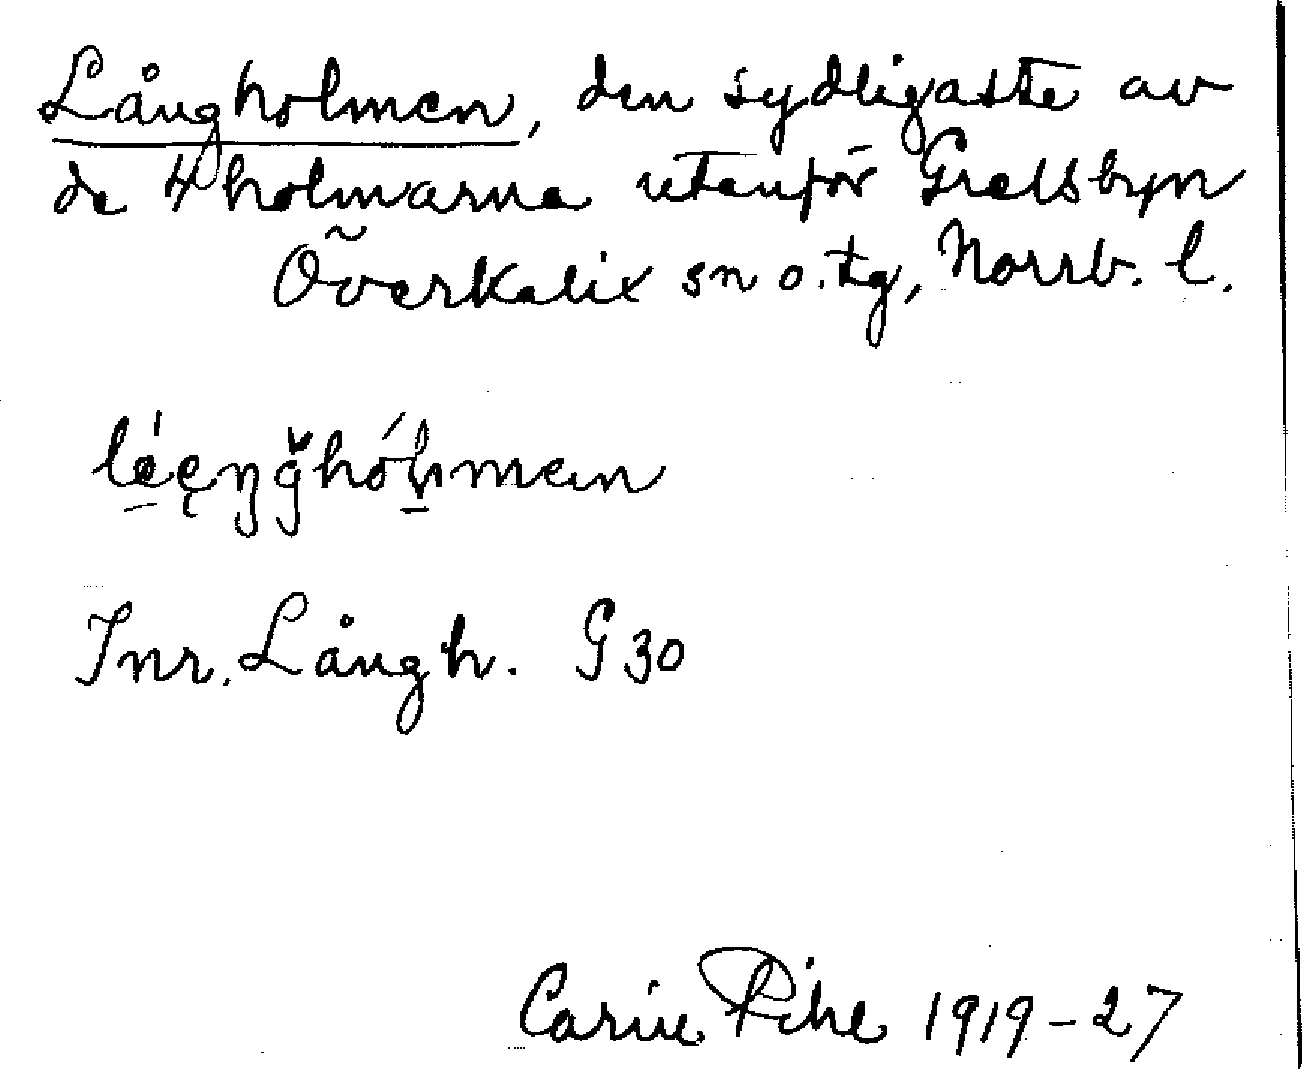 Långholmen, den sydligaste av
de 4 holmarna utanför Grelsbyn
Överkalix sn o. tg, Norrb. l.
Inr. Långh. G 30
Carin Pihl 1919-27